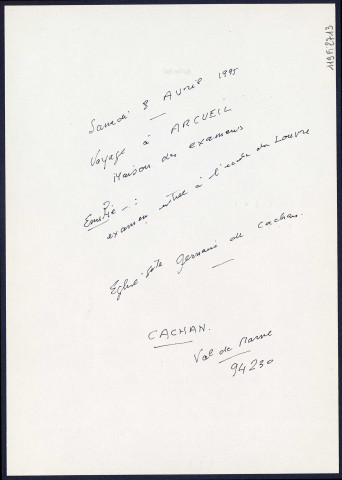 119Fi2713
Samedi 8 Avril 1995
Voyage à ARCUEIL
Maison des examens
Emilie :
examen entrée à l'école du Louvre
Eglise Ste Germaine de Cachan.
CACHAN.
Val de Marne
94230